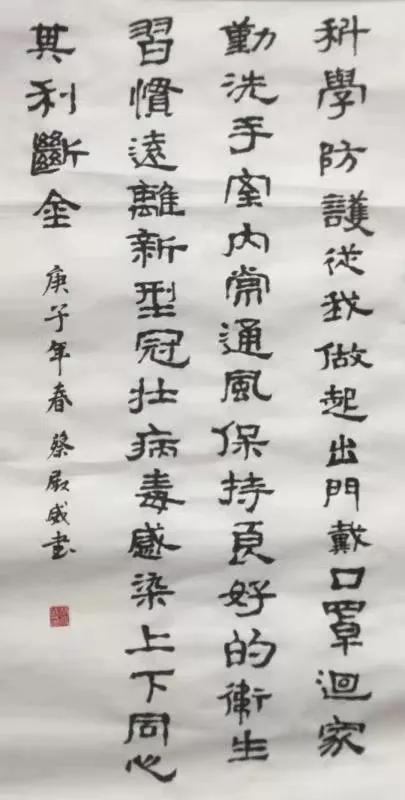 科學防護從我做起出門戴口罩迴家
勤洗手室内常通風保持良好的衛生
習慣遠離新型冠壮病毒感染上下同心
其利斷金 庚子年春 蔡殿威書